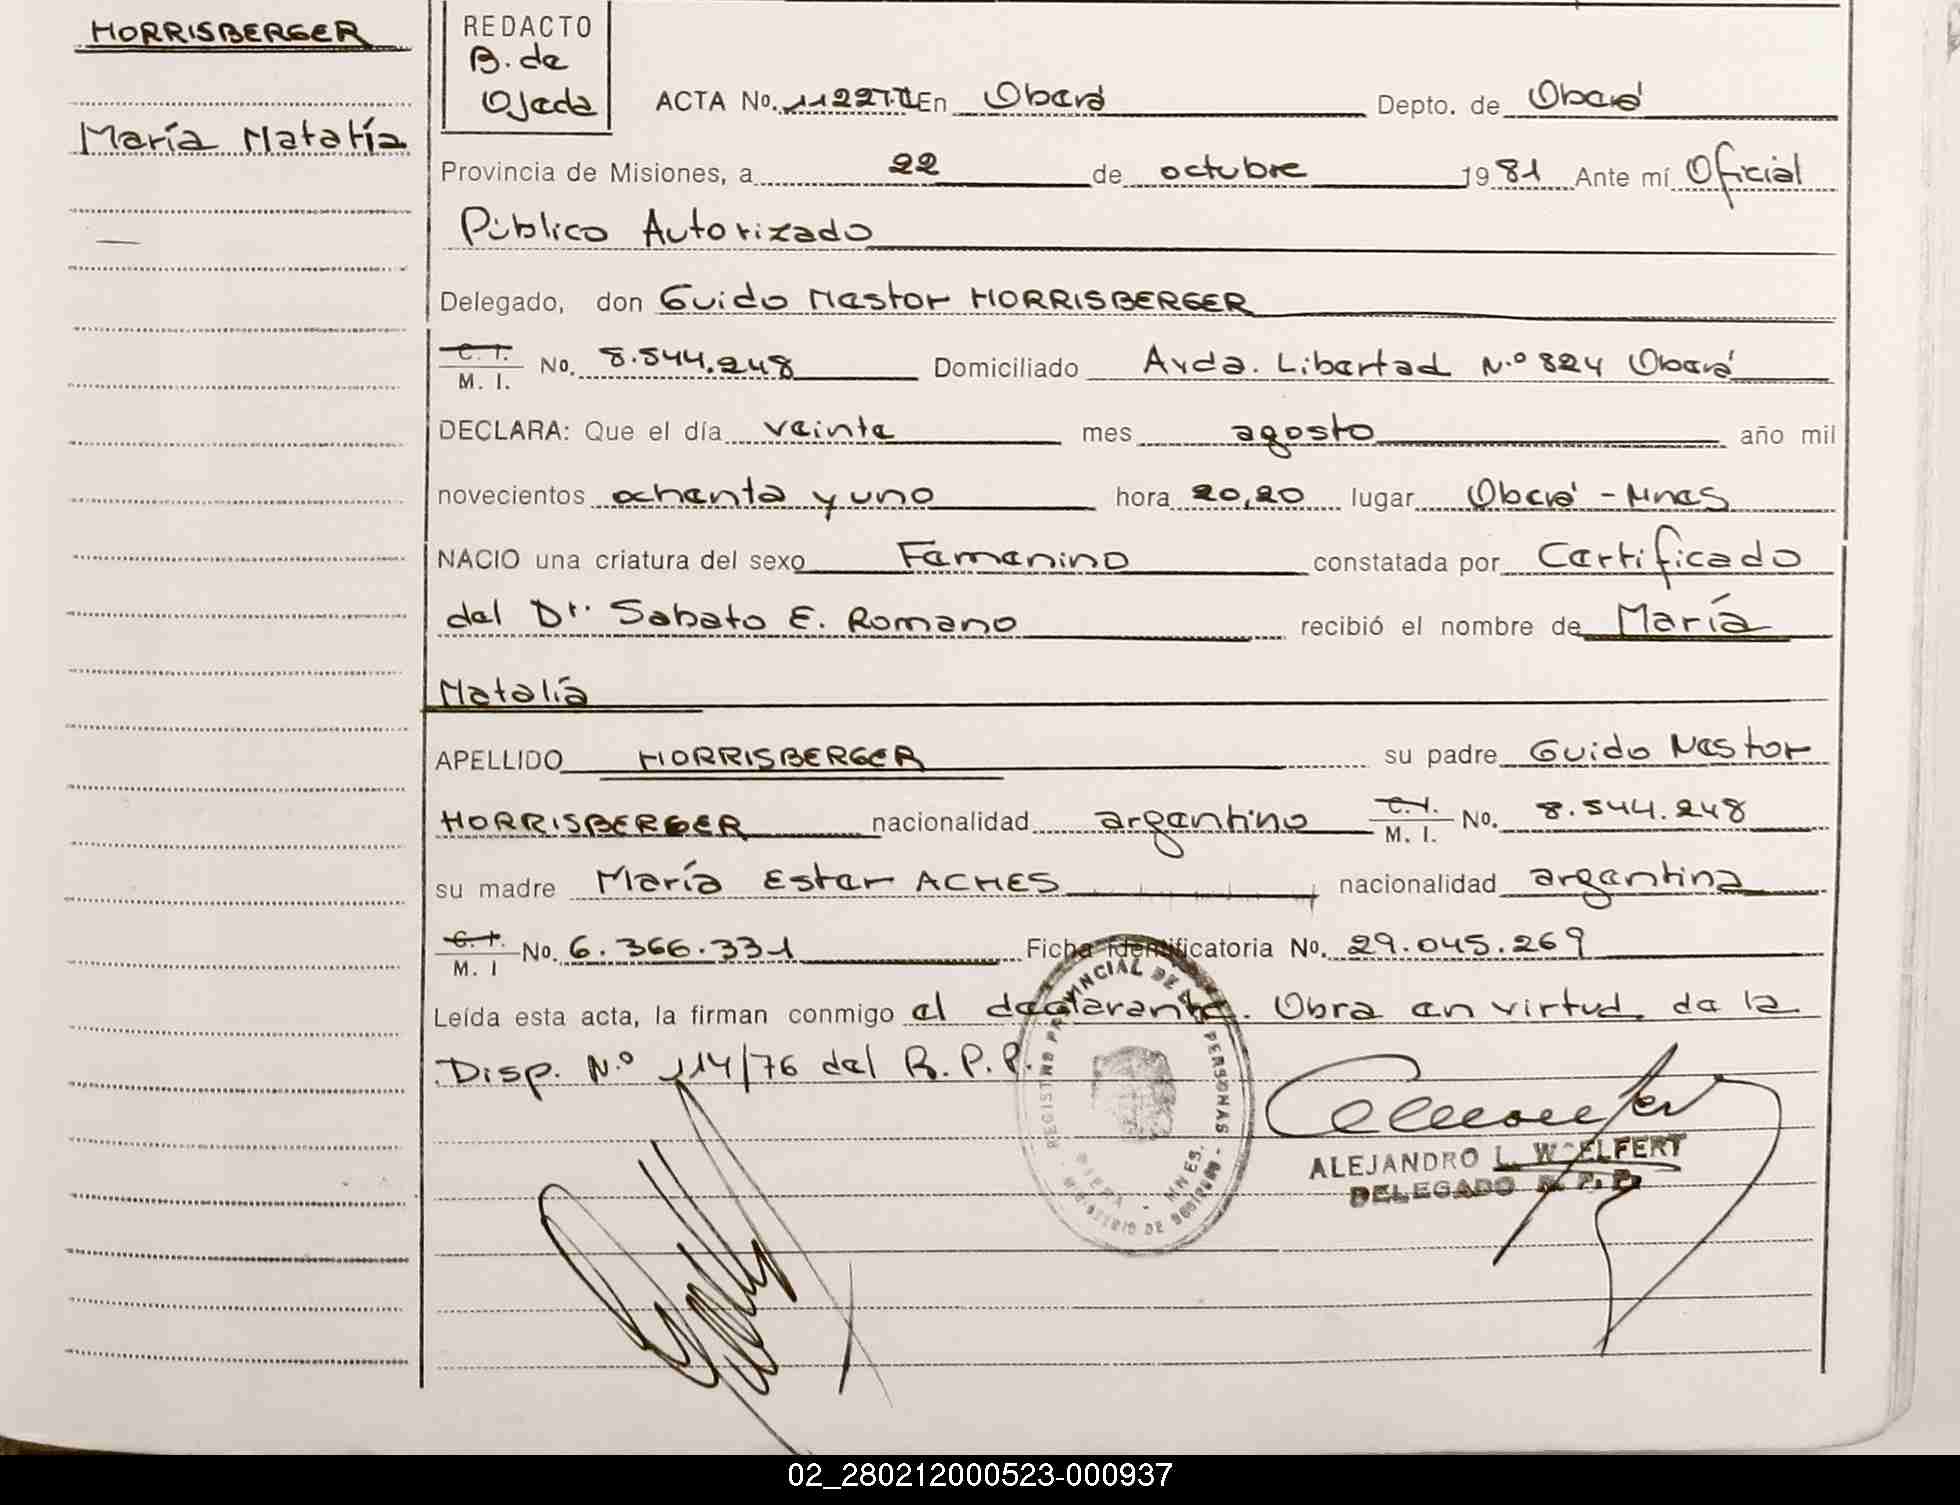 HORRISBERGER
María Natalía
REDACTO
B. de
Ojeda
ACTA No. 1122T.II En Oberá Depto. de Oberá
Provincia de Misiones, a 22 de octubre 1981 Ante mí Oficial
Público Autorizado
Delegado, don Guido Nestor HORRISBERGER
C. I.
M. I. No. 8.544.248 Domiciliado Avda. Libertad N.º 824 Oberá
DECLARA: Que el día veinte mes agosto año mil
novecientos ochenta y uno hora 20,20 lugar Oberá - Mnes
NACIO una criatura del sexo Femenino constatada por Certificado
del Dr. Sabato E. Romano recibió el nombre de María
Natalía
APELLIDO HORRISBERGER su padre Guido Nestor
HORRISBERGER nacionalidad argentino C. I. M. I. No. 8.544.248
su madre María Ester ACHES nacionalidad argentina
C. I.
M. I No. 6.366.331 Ficha identificatoria No. 29.045.269
Leída esta acta, la firman conmigo el declarante. Obra en virtud de la
Disp. N.º 114/76 del R. P. P.
REGISTRO PROVINCIAL DE LAS PERSONAS
MNES.
MINISTERIO DE GOBIERNO
ALEJANDRO L. WOELFERT
DELEGADO R. P. P.
02_280212000523-000937